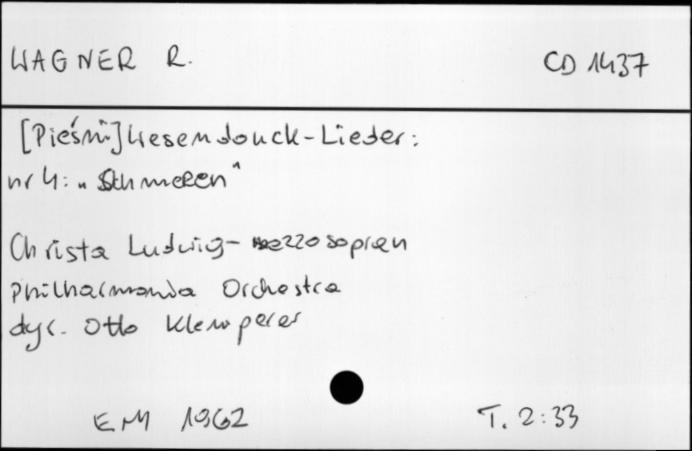 WAGNER R. CD 1437
[Pieśni] Wesendonck-Lieder:
nr 4: „Schmerzen"
Christa Ludwig - mezzosopran
Philharmonia Orchestra
dyr. Otto Klemperer
EMI 1962 T. 2:33